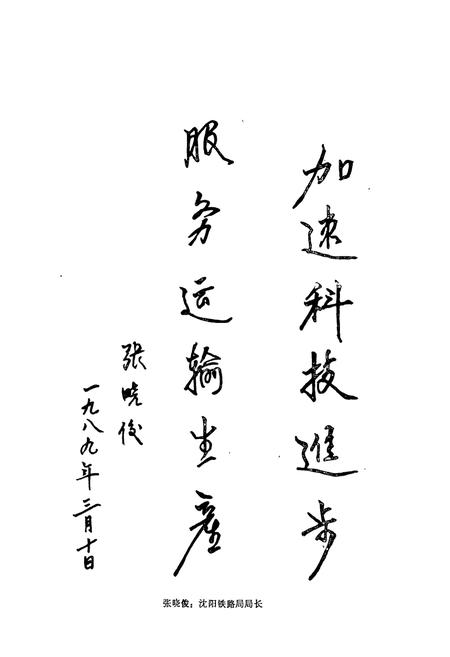 加速科技進步
服务运输生產
張晓俊
一九八九年三月十日
张晓俊：沈阳铁路局局长